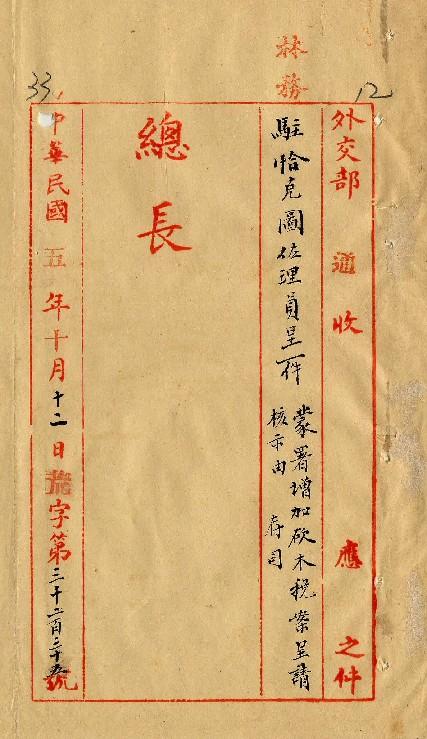 林務
12
33
外交部 通 收 應 之件
駐恰克圖佐理員呈一件
蒙署增加砍木稅案呈請
核示由 存司
總長
中華民國 五 年十月十二日 字第三千二百三十 號